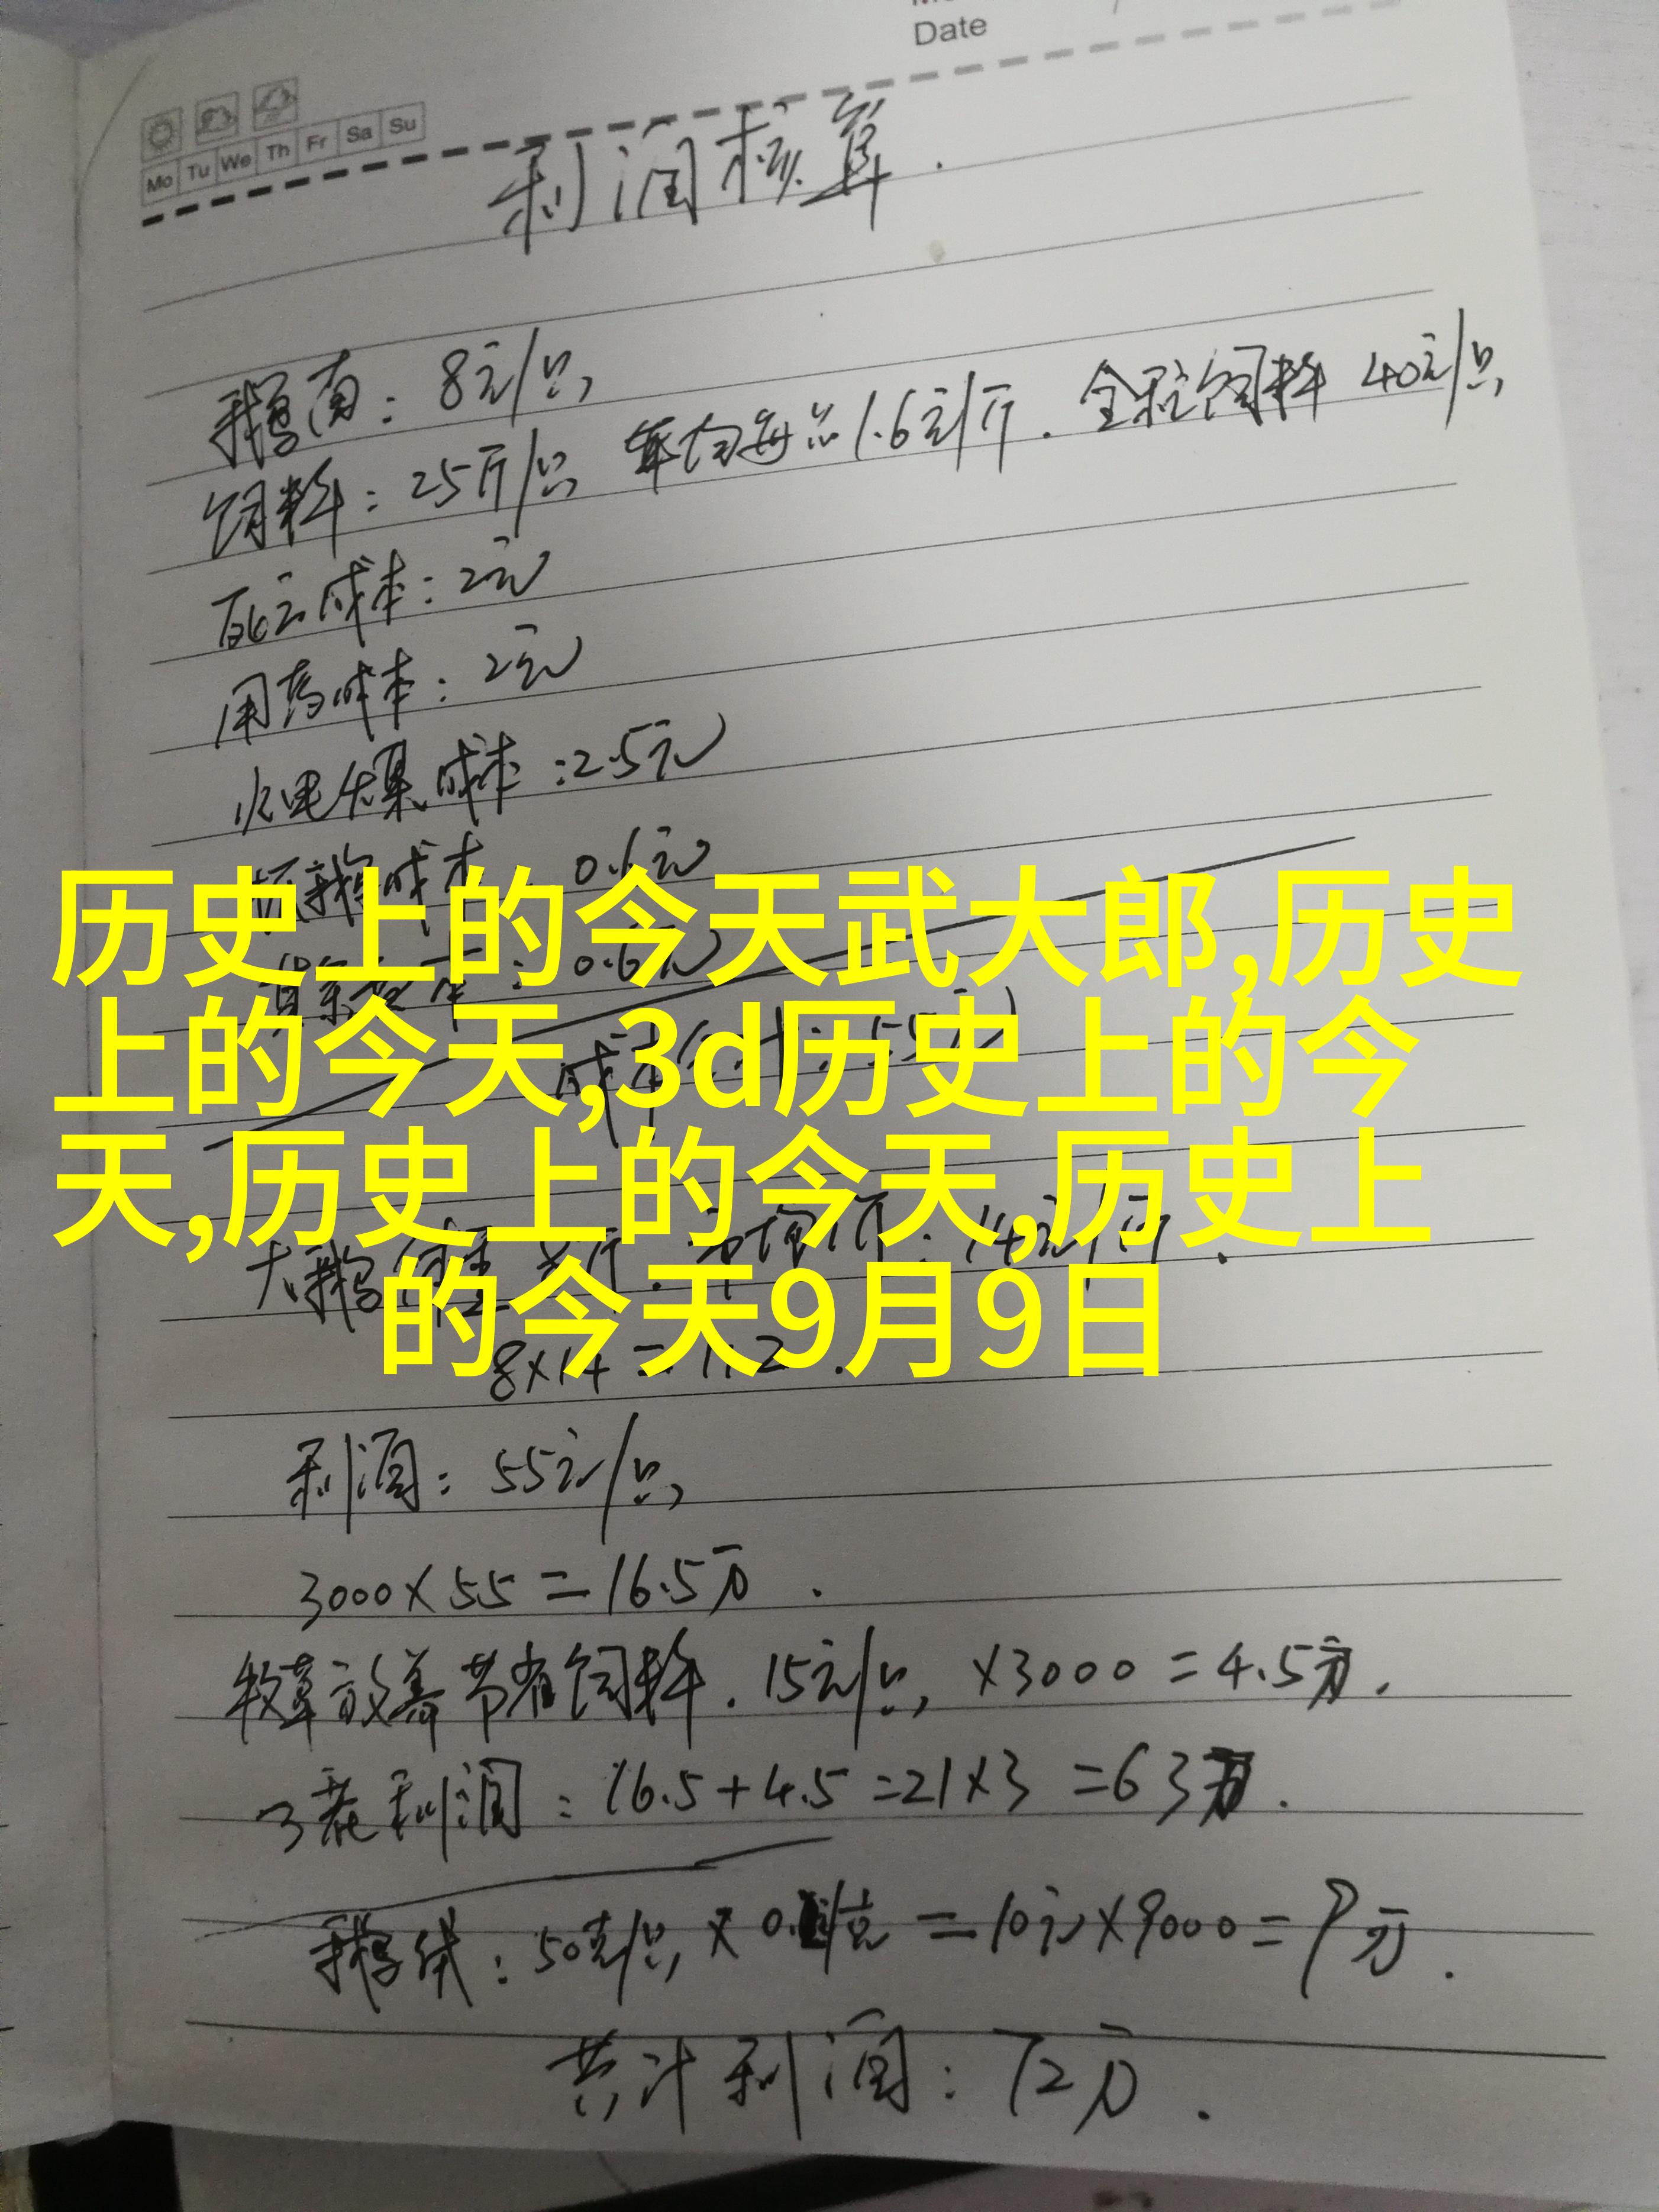 Date
Mo Tu We Th Fr Sa Su
利润核算.
鹅苗: 8元/只
饲料: 25斤/只 平均每斤1.6元/斤. 全程饲料 40元/只
死亡成本: 2元
用药成本: 2元
水电煤成本: 2.5元
抓鹅成本: 0.6元
0.6元
历史上的今天武大郎,历史
上的今天,3d历史上的今
天,历史上的今天,历史上
的今天9月9日
大鹅
8×14=112.
利润: 55元/只
3000×55=16.5万.
牧草放养节省饲料. 15元/只 ×3000=4.5万.
3茬利润: 16.5+4.5=21×3=63万.
鹅绒: 50克/只 × =10元×9000=9万.
共计利润: 72万.